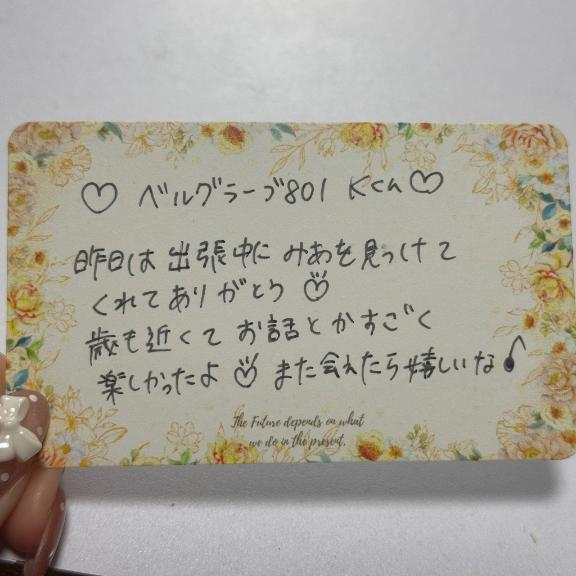 ♡ ベルグラーブ801 Kくん♡
昨日は出張中に みあを見つけて
くれてありがとう ♡
歳も近くて お話とかすごく
楽しかったよ ♡ また会えたら嬉しいな♪
The Future depends on what
we do in the present.